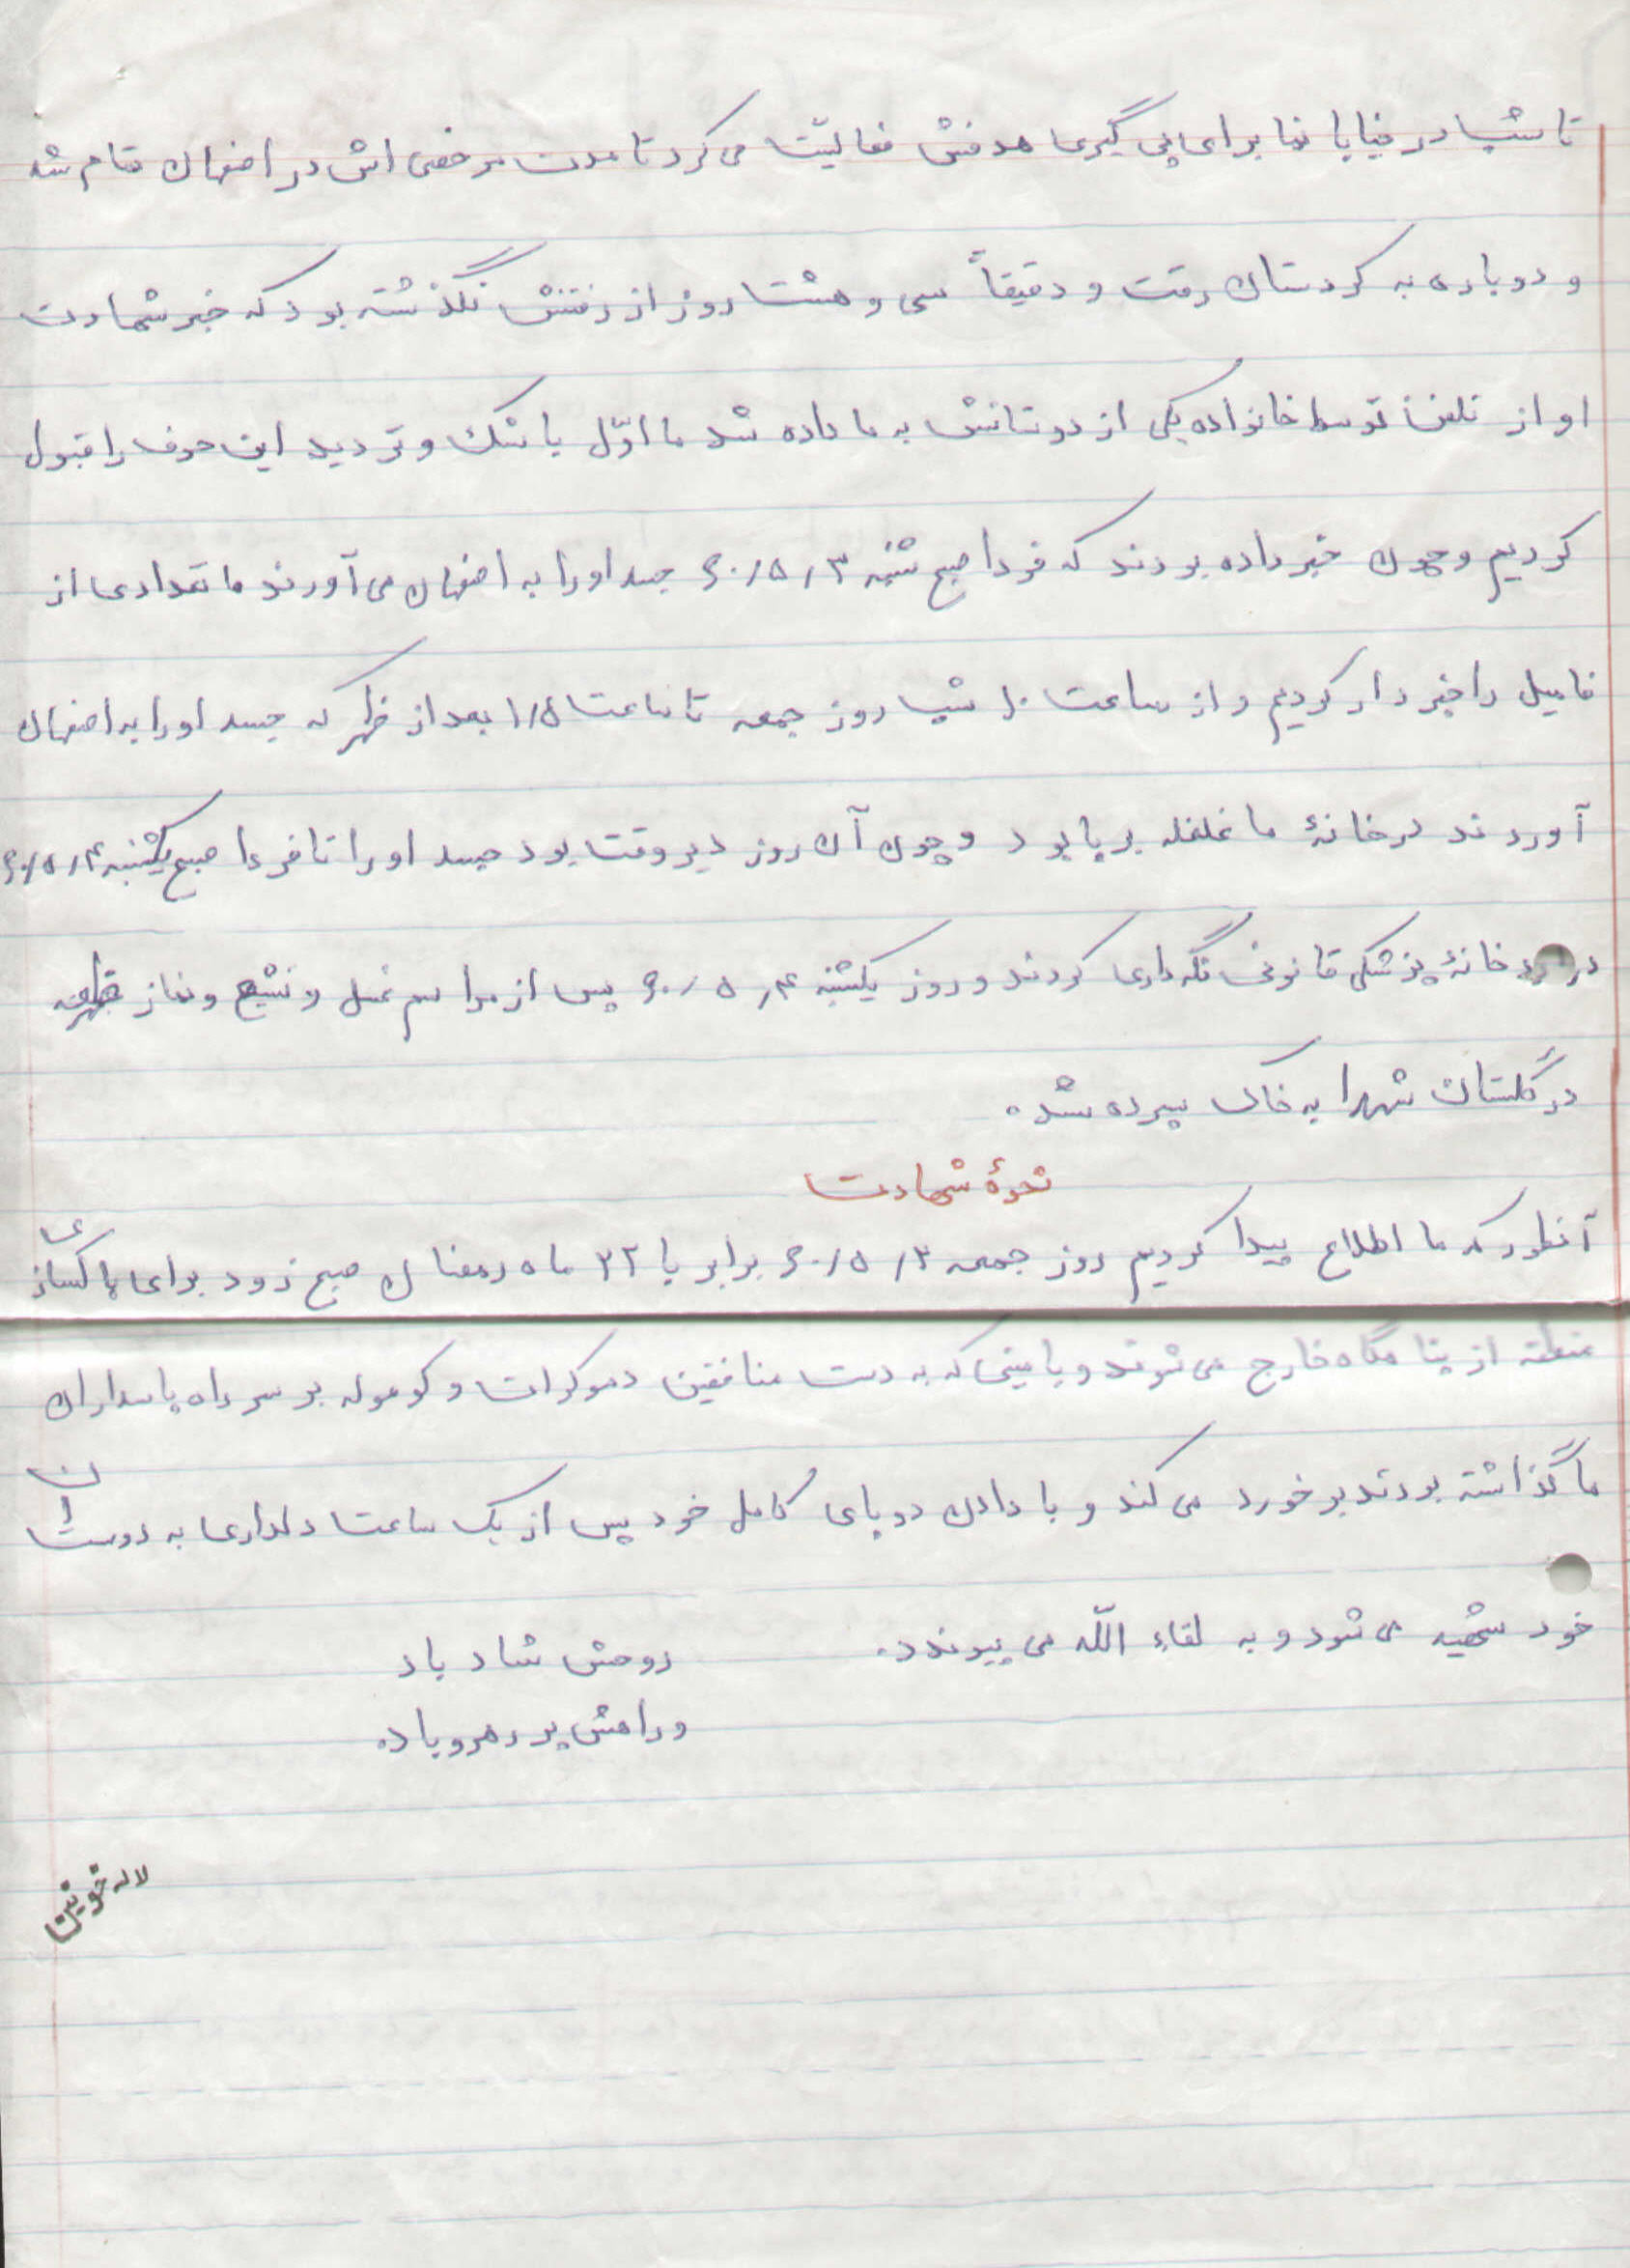 تا شب در خیابانها برای پی گیری هدفش فعالیّت می کرد تا مدت مرخصی اش در اصفهان تمام شد
و دوباره به کردستان رفت و دقیقاً سی و هشت روز از رفتنش نگذشته بود که خبر شهادت
او از تلفن توسط خانواده یکی از دوستانش به ما داده شد ما اوّل با شک و تردید این حرف را قبول
کردیم و چون خبر داده بودند که فردا صبح شنبه ۶۰/۵/۳ جسد او را به اصفهان می آورند ما تعدادی از
فامیل را خبردار کردیم و از ساعت ۱۰ شب روز جمعه تا ساعت ۱/۵ بعد از ظهر که جسد او را به اصفهان
آوردند در خانهٔ ما غلغله بر پا بود و چون آن روز دیر وقت بود جسد او را تا فردا صبح یکشنبه ۶۰/۵/۴
در سردخانهٔ پزشکی قانونی نگه داری کردند و روز یکشنبه ۶۰/۵/۴ پس از مراسم غسل و تشیع و نماز
در گلستان شهدا به خاک سپرده شد.
نحوهٔ شهادت
آنطور که ما اطلاع پیدا کردیم روز جمعه ۶۰/۵/۲ برابر با ۲۲ ماه رمضان صبح زود برای پاکسازی
منطقه از پناهگاه خارج می شوند و با مینی که به دست منافقین دموکرات و کوموله بر سر راه پاسداران
ما گذاشته بودند برخورد می کند و با دادن دو پای کامل خود پس از یک ساعت دلداری به دوستان
خود شهید می شود و به لقاء اللّه می پیوندد.
روحش شاد باد
و راهش پر رهرو باد.
لاله خونین